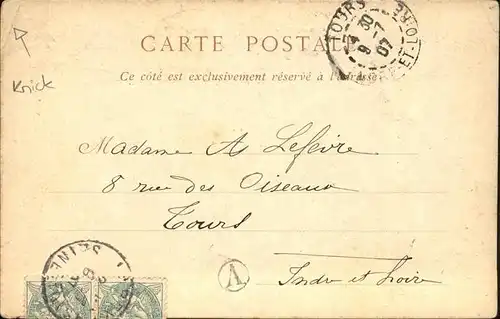 CARTE POSTALE
Ce côté est exclusivement réservé à l'adresse
TOURS
9 30
9-7
07
INDRE-ET-LOIRE
Knick
Madame A Lefèvre
8 rue des Oiseaux
Tours
A
Indre et Loire
SEINE